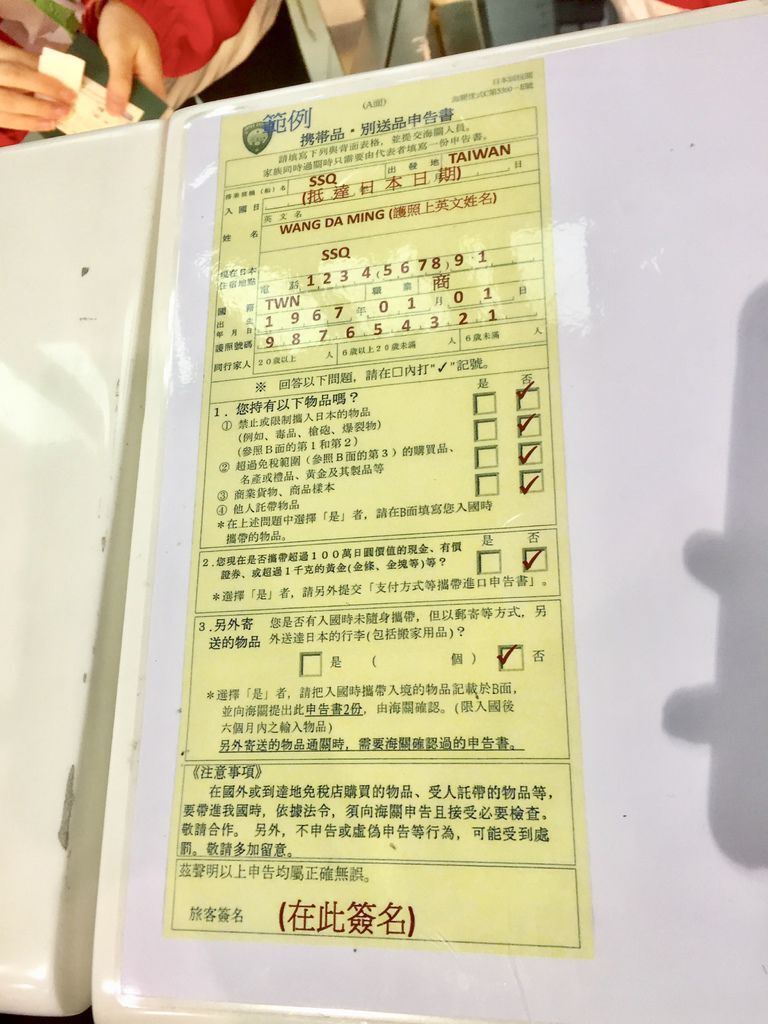 (A面)
日本國稅關
海關樣式C第5360-E號
範例
携帶品・別送品申告書
請填寫下列與背面表格，並提交海關人員。
家族同時過關時只需要由代表者填寫一份申告書。
搭乘班機（船）名 SSQ 出發地 TAIWAN
入國日 (抵達日本日期) 年 月 日
英文名
姓名 WANG DA MING (護照上英文姓名)
現在日本住宿地點 SSQ
電話 1 2 3 4 (5 6 7 8) 9 1
國籍 TWN 職業 商
出生年月日 1 9 6 7 年 0 1 月 0 1 日
護照號碼 9 8 7 6 5 4 3 2 1
同行家人 20歲以上 人 6歲以上20歲未滿 人 6歲未滿 人
※ 回答以下問題，請在□內打"✓"記號。
1．您持有以下物品嗎？ 是 否
① 禁止或限制攜入日本的物品
(例如、毒品、槍砲、爆裂物)
(參照B面的第1和第2)
② 超過免稅範圍（參照B面的第3）的購買品、
名產或禮品、黃金及其製品等
③ 商業貨物、商品樣本
④ 他人託帶物品
＊在上述問題中選擇「是」者，請在B面填寫您入國時
攜帶的物品。
是 否
2．您現在是否攜帶超過100萬日圓價值的現金、有價
證券、或超過1千克的黃金(金條、金塊等)等？
＊選擇「是」者，請另外提交「支付方式等攜帶進口申告書」。
3．另外寄送的物品 您是否有入國時未隨身攜帶，但以郵寄等方式，另
外送達日本的行李(包括搬家用品)？
是 ( 個 ) 否
＊選擇「是」者，請把入國時攜帶入境的物品記載於B面，
並向海關提出此申告書2份，由海關確認。(限入國後
六個月內之輸入物品)
另外寄送的物品通關時，需要海關確認過的申告書。
《注意事項》
在國外或到達地免稅店購買的物品、受人託帶的物品等，
要帶進我國時，依據法令，須向海關申告且接受必要檢查。
敬請合作。 另外，不申告或虛偽申告等行為，可能受到處
罰。敬請多加留意。
茲聲明以上申告均屬正確無誤。
旅客簽名 (在此簽名)